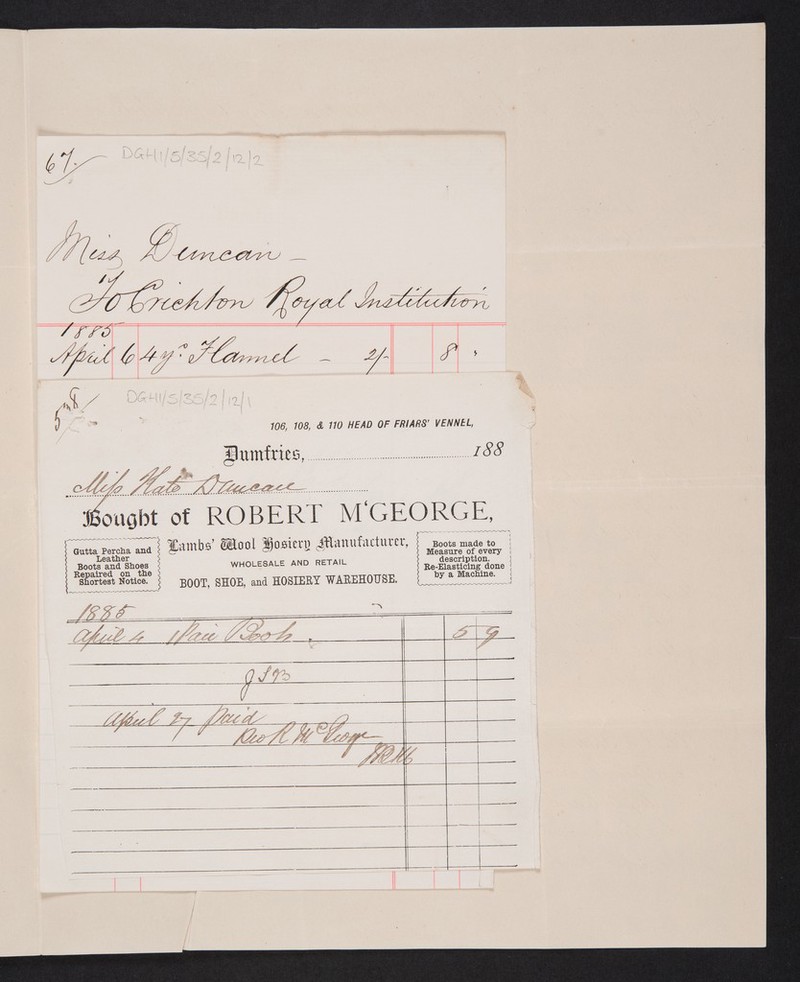 67.
DGH1/5/35/2/12/2
Miss Duncan –
To Crichton Royal Institution
1885
April 6 4 yds Flannel – 2/- 8 "
DGH1/5/35/2/12/1
106, 108, & 110 HEAD OF FRIARS' VENNEL,
Dumfries, 188
Miss Kate Duncan
Bought of ROBERT M'GEORGE,
Gutta Percha and Leather Boots and Shoes Repaired on the Shortest Notice.
Lambs' Wool Hosiery Manufacturer,
WHOLESALE AND RETAIL
BOOT, SHOE, and HOSIERY WAREHOUSE.
Boots made to Measure of every description. Re-Elasticing done by a Machine.
1885
April 4 1 Pair Boots 5 9
April 27 Paid
R McGeorge